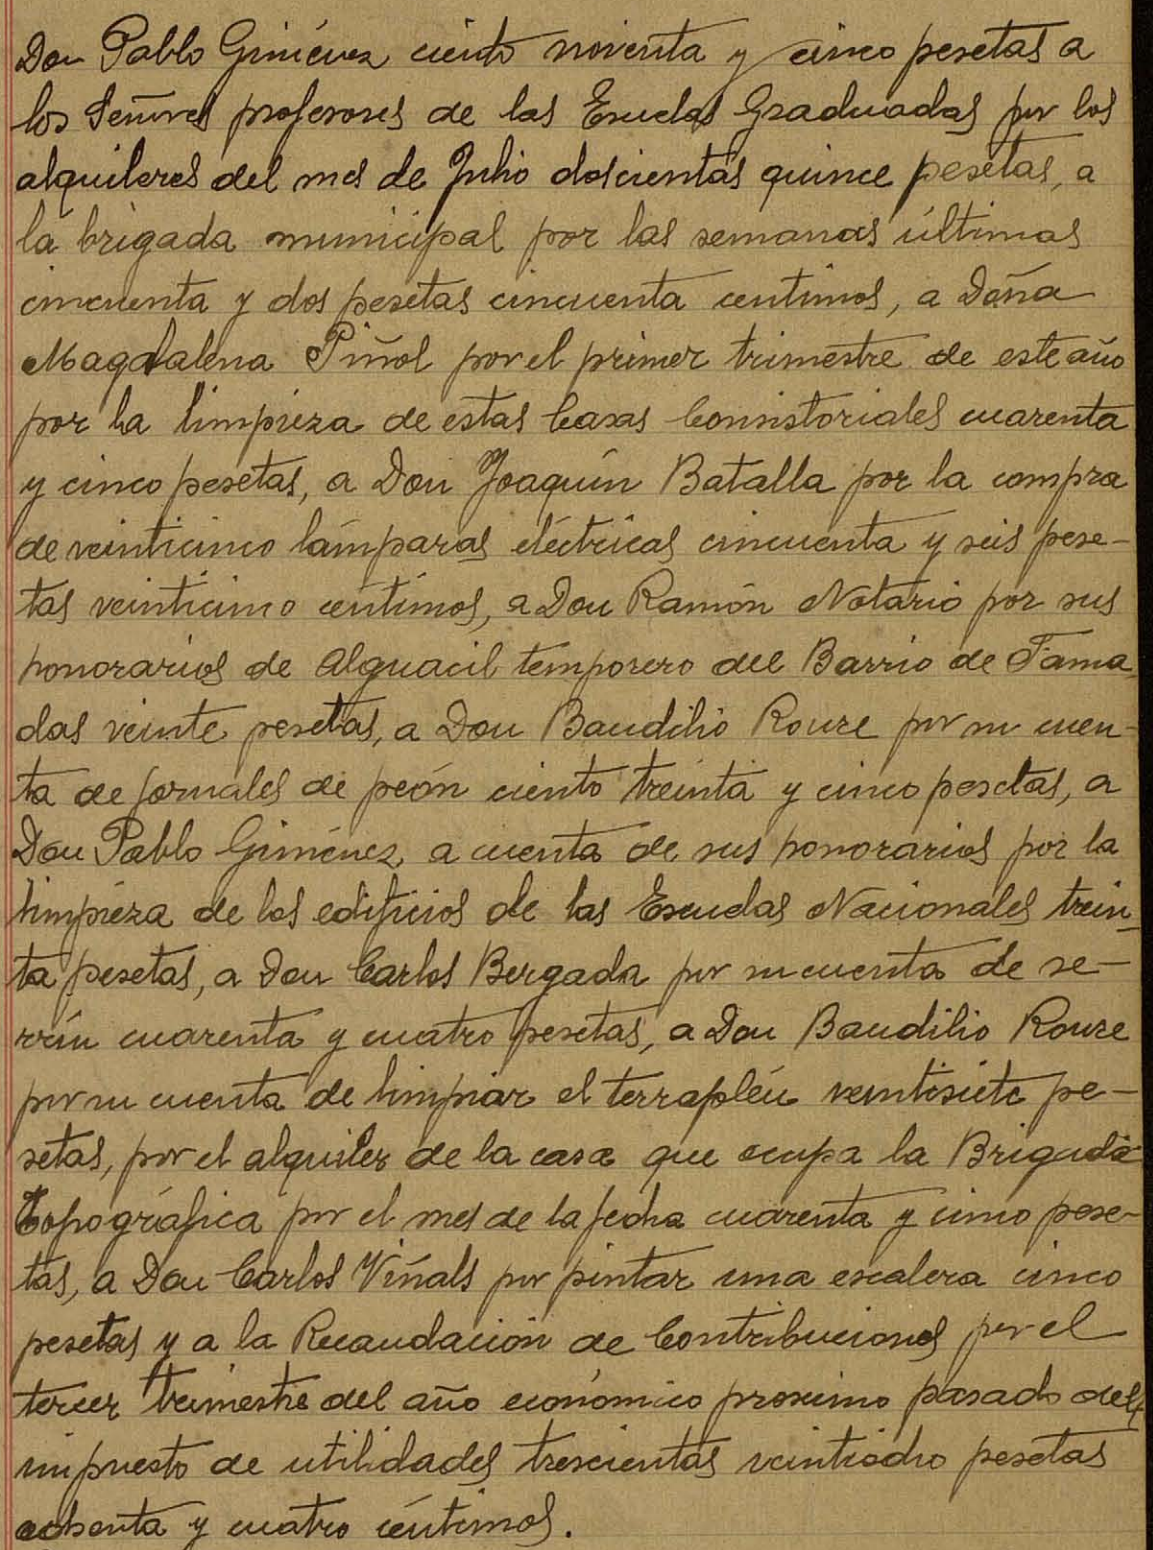 Don Pablo Giménez ciento noventa y cinco pesetas a
los Señores profesores de las Escuelas Graduadas por los
alquileres del mes de Julio doscientas quince pesetas, a
la brigada municipal por las semanas últimas
cincuenta y dos pesetas cincuenta centimos, a Doña
Magdalena Piñol por el primer trimestre de este año
por la limpieza de estas Casas Consistoriales cuarenta
y cinco pesetas, a Don Joaquín Batalla por la compra
de veinticinco lámparas eléctricas cincuenta y seis pese-
tas veinticinco centimos, a Don Ramón Notario por sus
honorarios de Alguacil temporero del Barrio de Fama
das veinte pesetas, a Don Baudilio Roure por su cuen-
ta de jornales de peón ciento treinta y cinco pesetas, a
Don Pablo Giménez a cuenta de sus honorarios por la
limpieza de los edificios de las Escuelas Nacionales trein-
ta pesetas, a Don Carlos Bergada por su cuenta de se-
rrín cuarenta y cuatro pesetas, a Don Baudilio Roure
por su cuenta de limpiar el terraplén veintisiete pe-
setas, por el alquiler de la casa que ocupa la Brigada
Topográfica por el mes de la fecha cuarenta y cinco pese-
tas, a Don Carlos Viñals por pintar una escalera cinco
pesetas y a la Recaudación de Contribuciones por el
tercer trimestre del año económico proximo pasado del
impuesto de utilidades trescientas veintiocho pesetas
ochenta y cuatro céntimos.